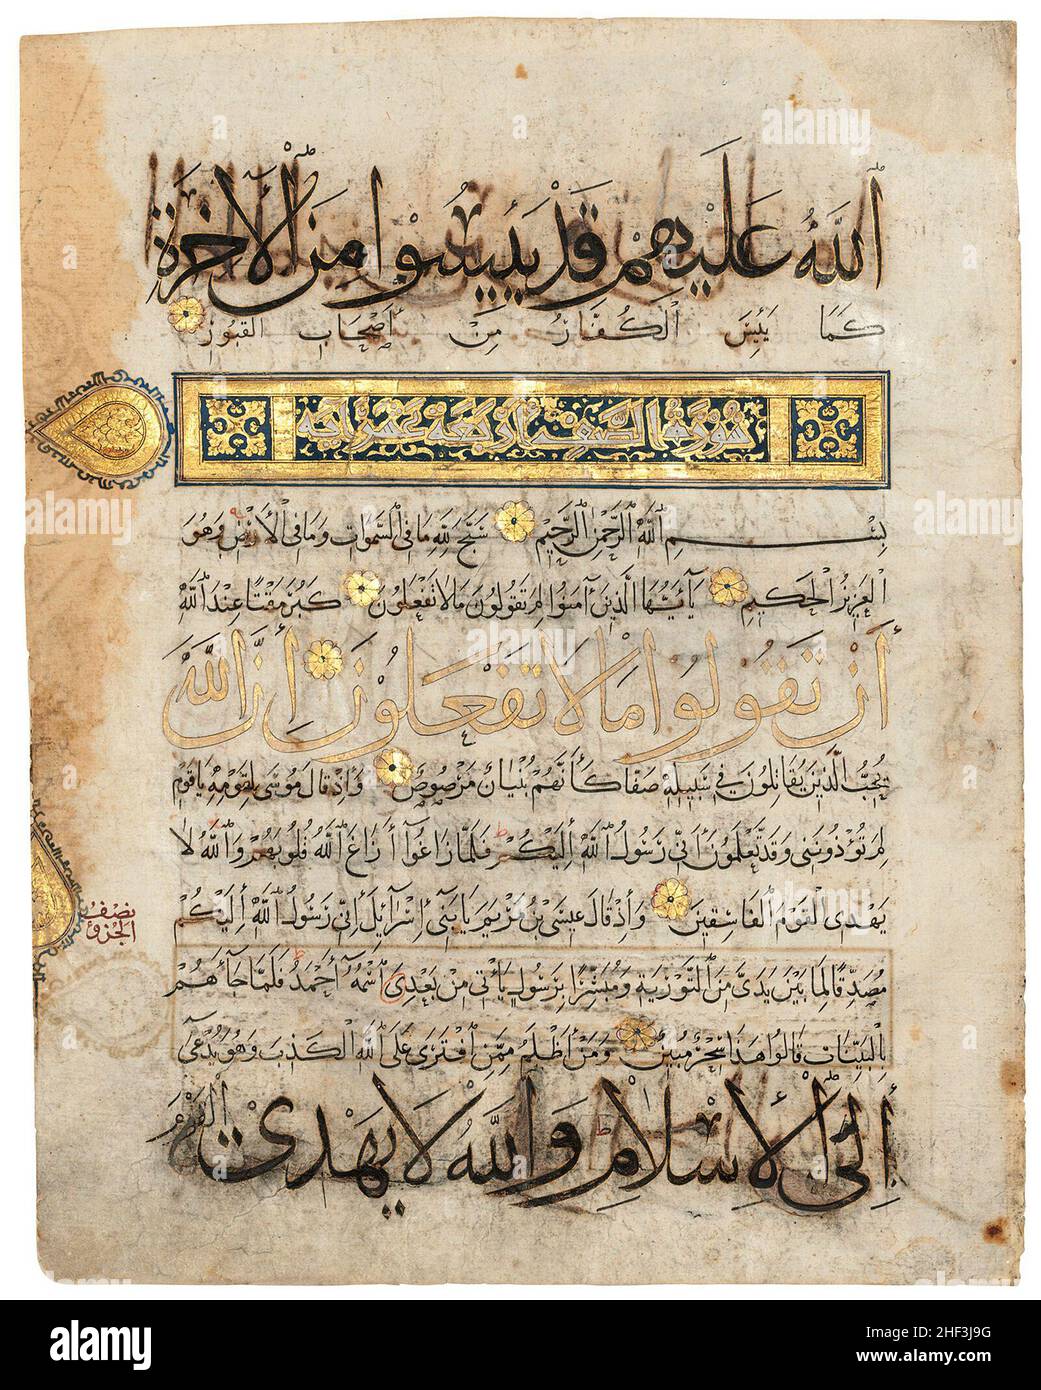 ٱللَّهُ عَلَيْهِمْ قَدْ يَئِسُوا مِنَ ٱلْأَخِرَةِ
كَمَا يَئِسَ ٱلْكُفَّارُ مِنْ أَصْحَابِ القُبُورِ
سُورَةُ الصَّفِّ أَرْبَعَ عَشْرَ آيَة
بِسْمِ ٱللَّهِ ٱلرَّحْمٰنِ ٱلرَّحِيمِ سَبَّحَ لِلَّهِ مَا فِي ٱلسَّمَوَاتِ وَمَا فِي ٱلْأَرْضِ وَهُوَ
ٱلْعَزِيزُ ٱلْحَكِيمُ يَا أَيُّهَا ٱلَّذِينَ آمَنُوا لِمَ تَقُولُونَ مَا لَا تَفْعَلُونَ كَبُرَ مَقْتًا عِنْدَ ٱللَّهِ
أَنْ تَقُولُوا مَا لَا تَفْعَلُونَ إِنَّ ٱللَّهَ
يُحِبُّ ٱلَّذِينَ يُقَاتِلُونَ فِي سَبِيلِهِ صَفًّا كَأَنَّهُمْ بُنْيَانٌ مَرْصُوصٌ وَإِذْ قَالَ مُوسَى لِقَوْمِهِ يَا قَوْمِ
لِمَ تُؤْذُونَنِي وَقَدْ تَعْلَمُونَ أَنِّي رَسُولُ ٱللَّهِ إِلَيْكُمْ فَلَمَّا زَاغُوا أَزَاغَ ٱللَّهُ قُلُوبَهُمْ وَٱللَّهُ لَا
يَهْدِي ٱلْقَوْمَ ٱلْفَاسِقِينَ وَإِذْ قَالَ عِيسَى بْنُ مَرْيَمَ يَا بَنِي إِسْرَآئِيلَ إِنِّي رَسُولُ ٱللَّهِ إِلَيْكُمْ
نصف
الجزو
مُصَدِّقًا لِمَا بَيْنَ يَدَيَّ مِنَ ٱلتَّوْرَيةِ وَمُبَشِّرًا بِرَسُولٍ يَأْتِي مِنْ بَعْدِيَ ٱسْمُهُ أَحْمَدُ فَلَمَّا جَآءَهُمْ
بِٱلْبَيِّنَاتِ قَالُوا هَذَا سِحْرٌ مُبِينٌ وَمَنْ أَظْلَمُ مِمَّنِ ٱفْتَرَى عَلَى ٱللَّهِ ٱلْكَذِبَ وَهُوَ يُدْعَى
إِلَى ٱلْإِسْلَامِ وَٱللَّهُ لَا يَهْدِي ٱلْقَوْمَ
alamy
Image ID: 2HF3J9G
www.alamy.com